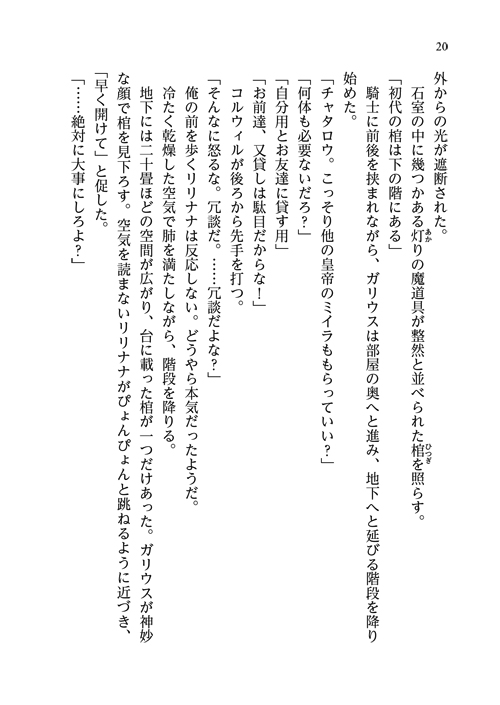 20
外からの光が遮断された。
石室の中に幾つかある灯りの魔道具が整然と並べられた棺を照らす。
あか
ひつぎ
「初代の棺は下の階にある」
騎士に前後を挟まれながら、ガリウスは部屋の奥へと進み、地下へと延びる階段を降り
始めた。
「チャタロウ。こっそり他の皇帝のミイラももらっていい？」
「何体も必要ないだろ？」
「自分用とお友達に貸す用」
「お前達、又貸しは駄目だからな！」
コルウィルが後ろから先手を打つ。
「そんなに怒るな。冗談だ。……冗談だよな？」
俺の前を歩くリリナナは反応しない。どうやら本気だったようだ。
冷たく乾燥した空気で肺を満たしながら、階段を降りる。
地下には二十畳ほどの空間が広がり、台に載った棺が一つだけあった。ガリウスが神妙
な顔で棺を見下ろす。空気を読まないリリナナがぴょんぴょんと跳ねるように近づき、
「早く開けて」と促した。
「……絶対に大事にしろよ？」